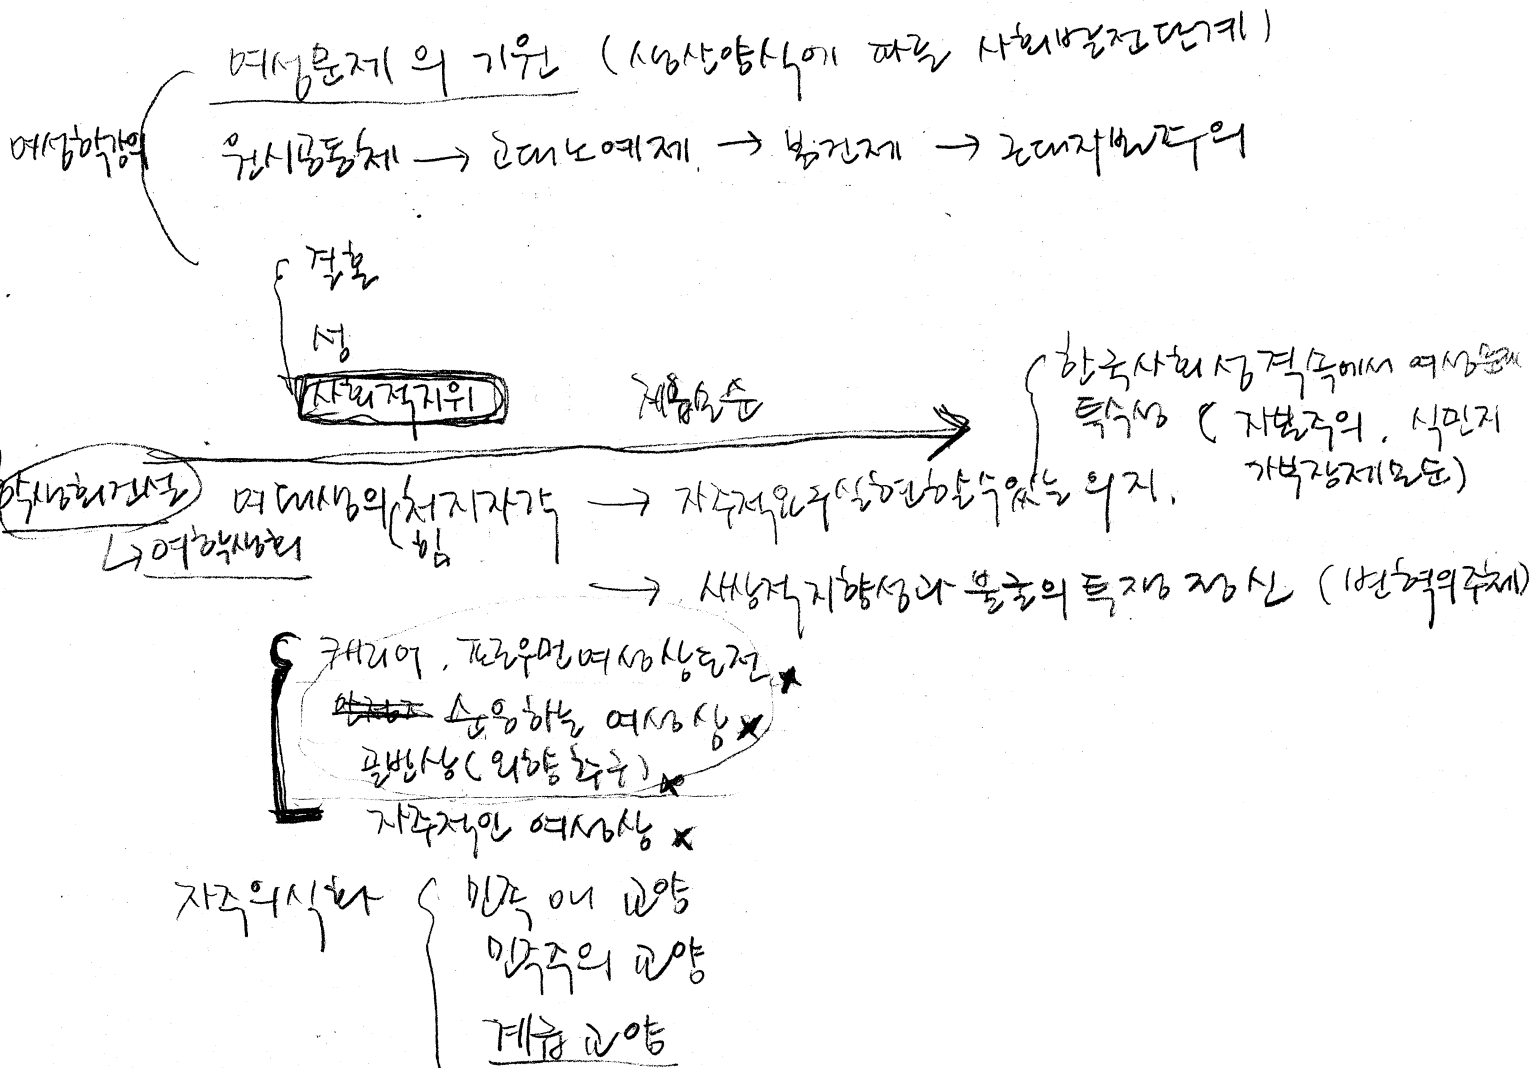 여성문제의 기원 (생산양식에 따른 사회발전단계)
여성학강의
원시공동체 → 고대노예제 → 봉건제 → 근대자본주의
결혼
성
사회적지위
계급모순
한국사회성격속에서 여성문제
특수성 (자본주의, 식민지
가부장제모순)
학생회건설
여대생의 (처지자각 → 자주적요구실현할수있는 의지.
힘
↳ 여학생회
→ 사상적지향성과 불굴의 투쟁정신 (변혁의주체)
캐리어, 프로우먼여성상도전 x
순응하는 여성상 x
골반상 (외향추구) x
자주적인 여성상 x
자주의식화
민족애 교양
민족주의 교양
계급교양